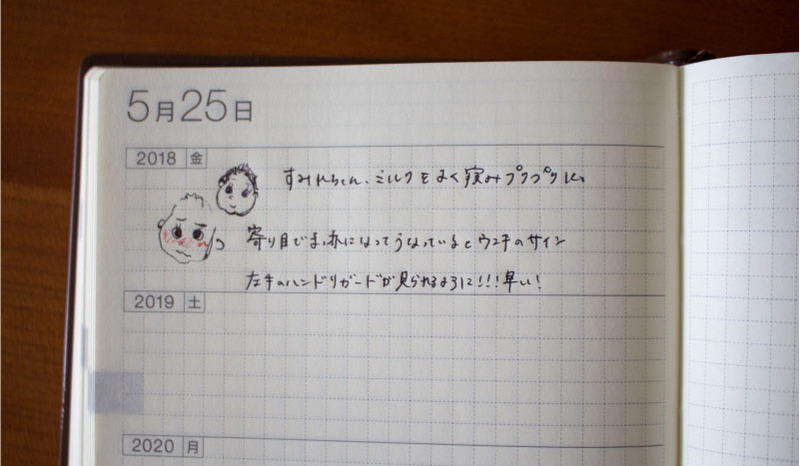 5月25日
2018 金
すみれちゃん、ミルクをよく飲みプクプクに。
寄り目でまっ赤になってうなっているとウンチのサイン
左手のハンドリガードが見られるように!!!早い!
2019 土
2020 月